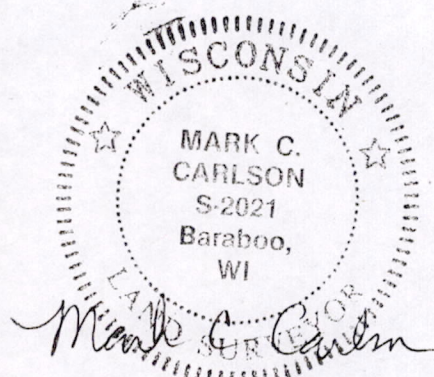 WISCONSIN
MARK C.
CARLSON
S-2021
Baraboo,
WI
LAND SURVEYOR
Mark C Carlson